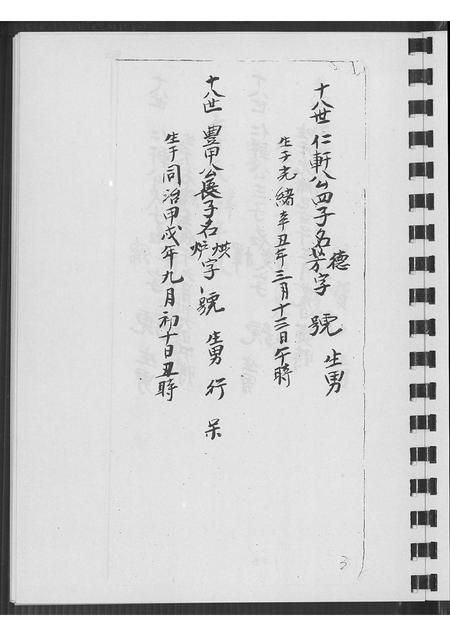 十八世 仁軒公四子名德芳字 號 生男
生于光緒辛丑年三月十三日午時
十八世 豐甲公長子名烘炉字 號 生男 行 呆
生于同治甲戌年九月初十日丑時
3